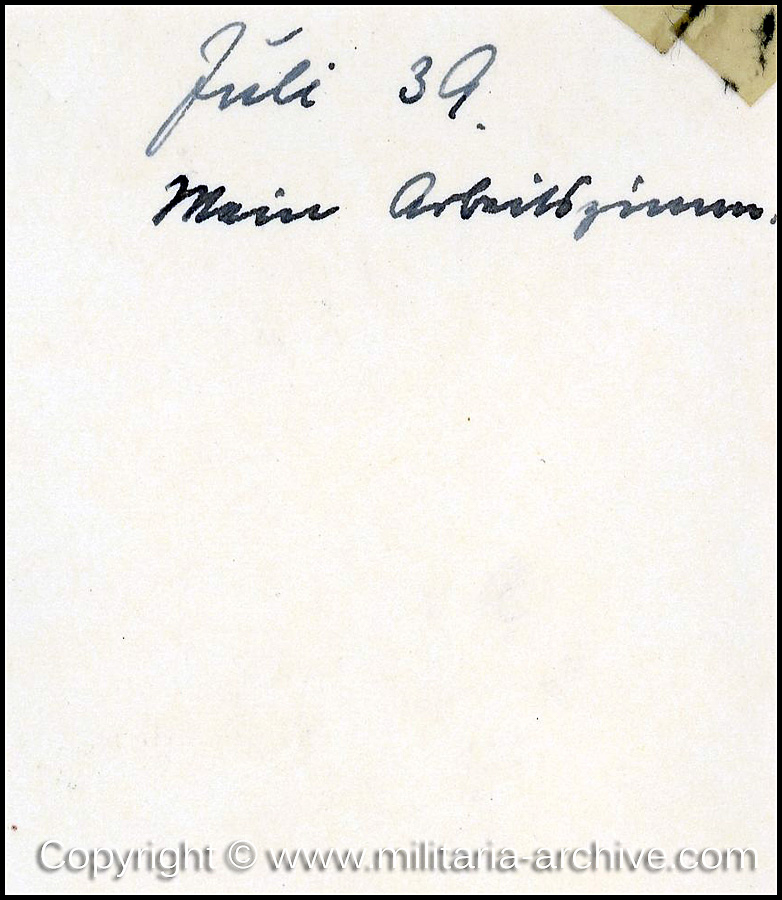 Juli 39.
Mein Arbeitszimmer.
Copyright © www.militaria-archive.com